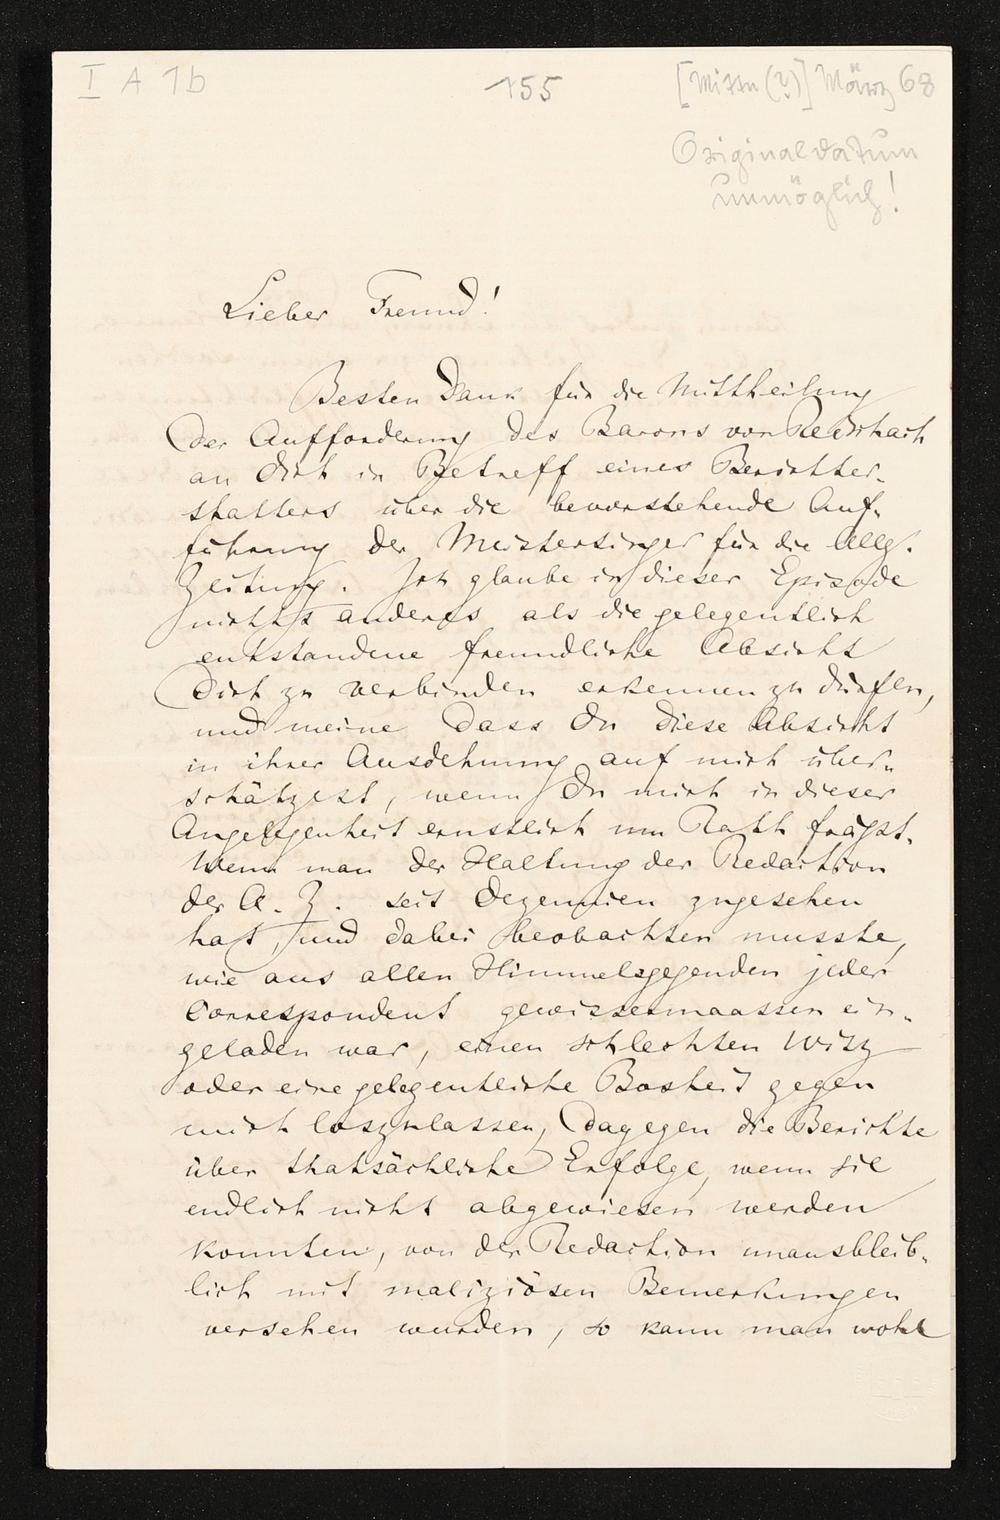 I A 1b
155
[Mitte (?)] März 68
Originaldatum
unmöglich!
Lieber Freund!
Besten Dank für die Mittheilung
der Aufforderung des Barons von Reischach
an Dich in Betreff eines Berichter-
statters über die bevorstehende Auf-
führung der Meistersinger für die Allg.
Zeitung. Ich glaube in dieser Episode
nichts anderes als die gelegentlich
entstandene freundliche Absicht
Dich zu verbinden erkennen zu dürfen,
und meine dass Du diese Absicht
in ihrer Ausdehnung auf mich über-
schätzest, wenn Du mich in dieser
Angelegenheit ernstlich um Rath frägst.
Wenn man der Haltung der Redaction
der A. Z. seit Dezennien zugesehen
hat, und dabei beobachten musste,
wie aus allen Himmelsgegenden jeder
Correspondent gewissermaassen ein-
geladen war, einen schlechten Witz
oder eine gelegentliche Bosheit gegen
mich loszulassen, dagegen die Berichte
über thatsächliche Erfolge, wenn sie
endlich nicht abgewiesen werden
konnten, von der Redaction unausbleib-
lich mit maliziösen Bemerkungen
versehen wurden, so kann man wohl